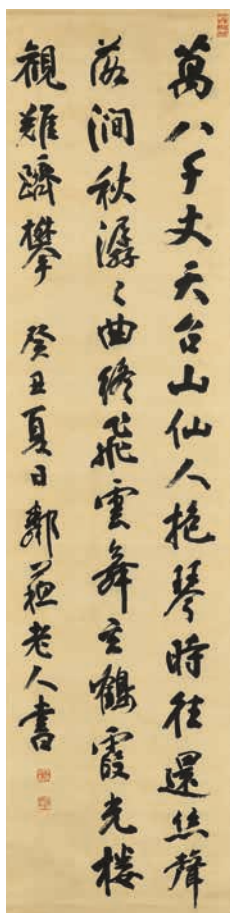 萬八千丈天台山仙人抱琴時往還丝聲
落澗秋潺々曲終飛雲舞玄鶴霞光樓
観難躋攀 癸丑夏日鄰菰老人書